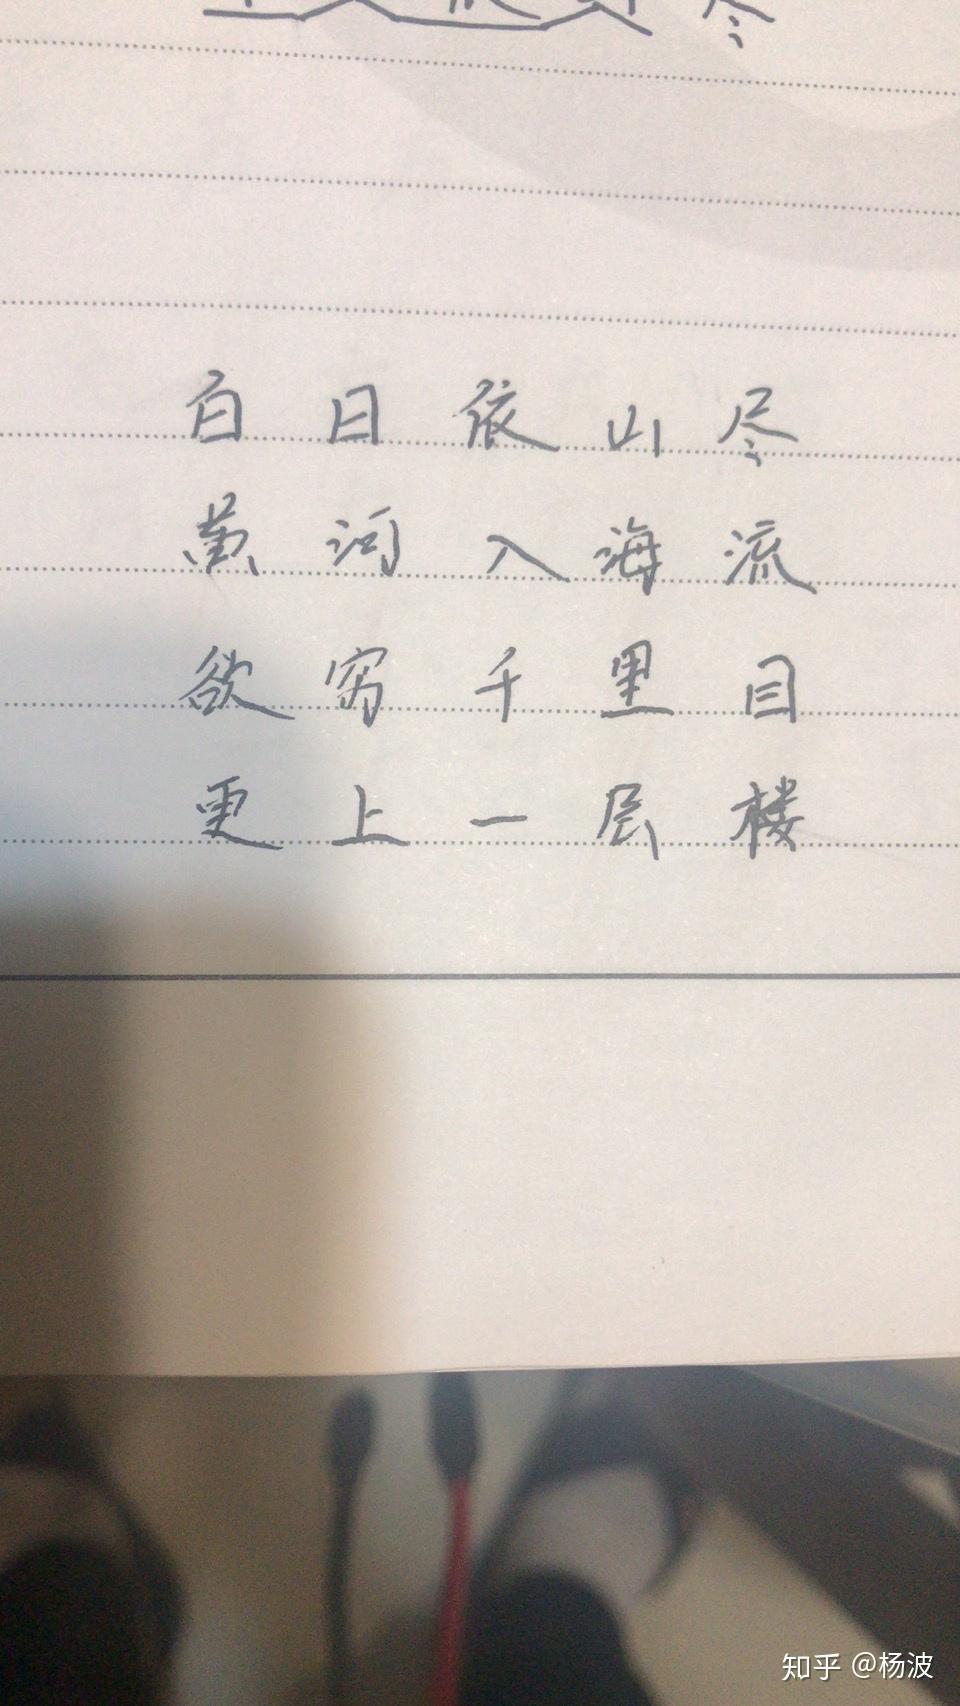 尽
白日依山尽
黄河入海流
欲穷千里目
更上一层楼
知乎 @杨波